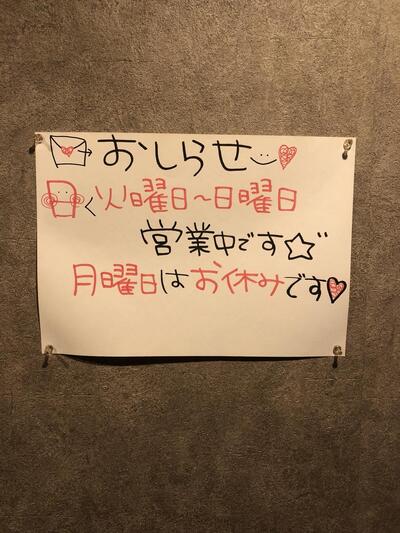 おしらせ
火曜日〜日曜日
営業中です☆
月曜日はお休みです♥